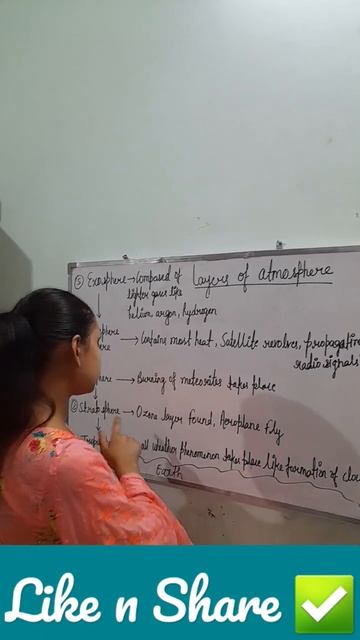 Layers of atmosphere
⑤ Exosphere → Composed of
lighter gases like
helium, argon, hydrogen
phere
ere → Contains most heat, Satellite revolves, propagation
radio signals
here → Burning of meteorites takes place
② Stratosphere → Ozone layer found, Aeroplane fly
all whether phenomenon takes place like formation of clo
Earth
Like n Share